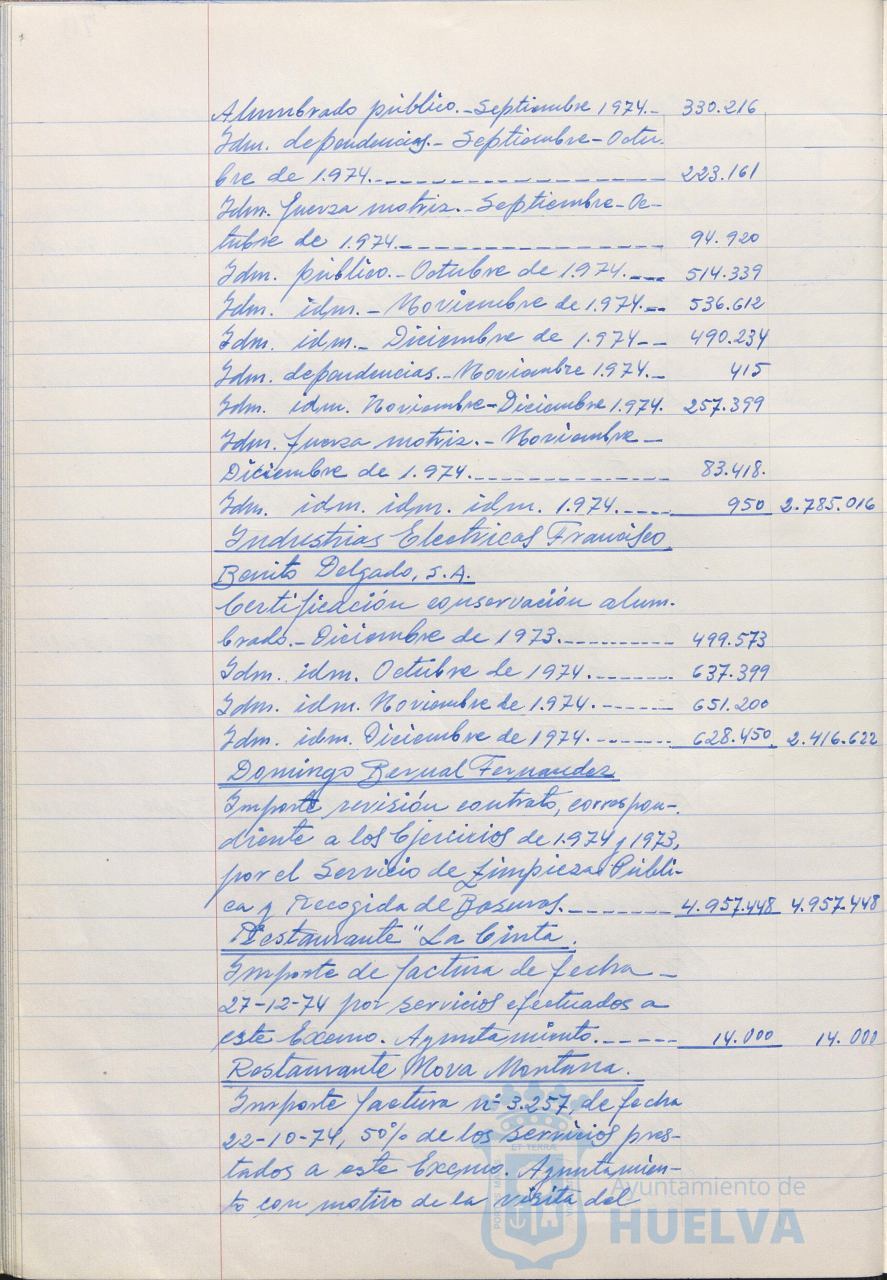 Alumbrado público.- Septiembre 1974.- 330.216
Idm. dependencias.- Septiembre-Octu-
bre de 1.974.- 223.161
Idm. fuerza motriz.- Septiembre-Oc-
tubre de 1.974.- 94.920
Idm. público.- Octubre de 1.974.- 514.339
Idm. idm.- Noviembre de 1.974.- 536.612
Idm. idm.- Diciembre de 1.974-- 490.234
Idm. dependencias.- Noviembre 1.974.- 415
Idm. idm. Noviembre-Diciembre 1.974. 257.399
Idm. fuerza motriz.- Noviembre-
Diciembre de 1.974.- 83.418.
Idm. idm. idm. idm. 1.974.- 950 2.785.016
Industrias Electricas Francisco
Benito Delgado, S.A.
Certificación conservación alum-
brado.- Diciembre de 1973.- 499.573
Idm. idm. Octubre de 1974.- 637.399
Idm. idm. Noviembre de 1.974.- 651.200
Idm. idm. Diciembre de 1974.- 628.450 2.416.622
Domingo Bernal Fernandez
Importe revisión contrato, correspon-
diente a los Ejercicios de 1.974 y 1973,
por el Servicio de Limpieza Públi-
ca y Recogida de Basuras.- 4.957.448 4.957.448
Restaurante "La Cinta.
Importe de factura de fecha -
27-12-74 por servicios efectuados a
este Excmo. Ayuntamiento.- 14.000 14.000
Restaurante Nova Montana.
Importe factura nº 3.257, de fecha
22-10-74, 50% de los servicios pres-
tados a este Excmo. Ayuntamien-
to con motivo de la visita del
Ayuntamiento de
HUELVA